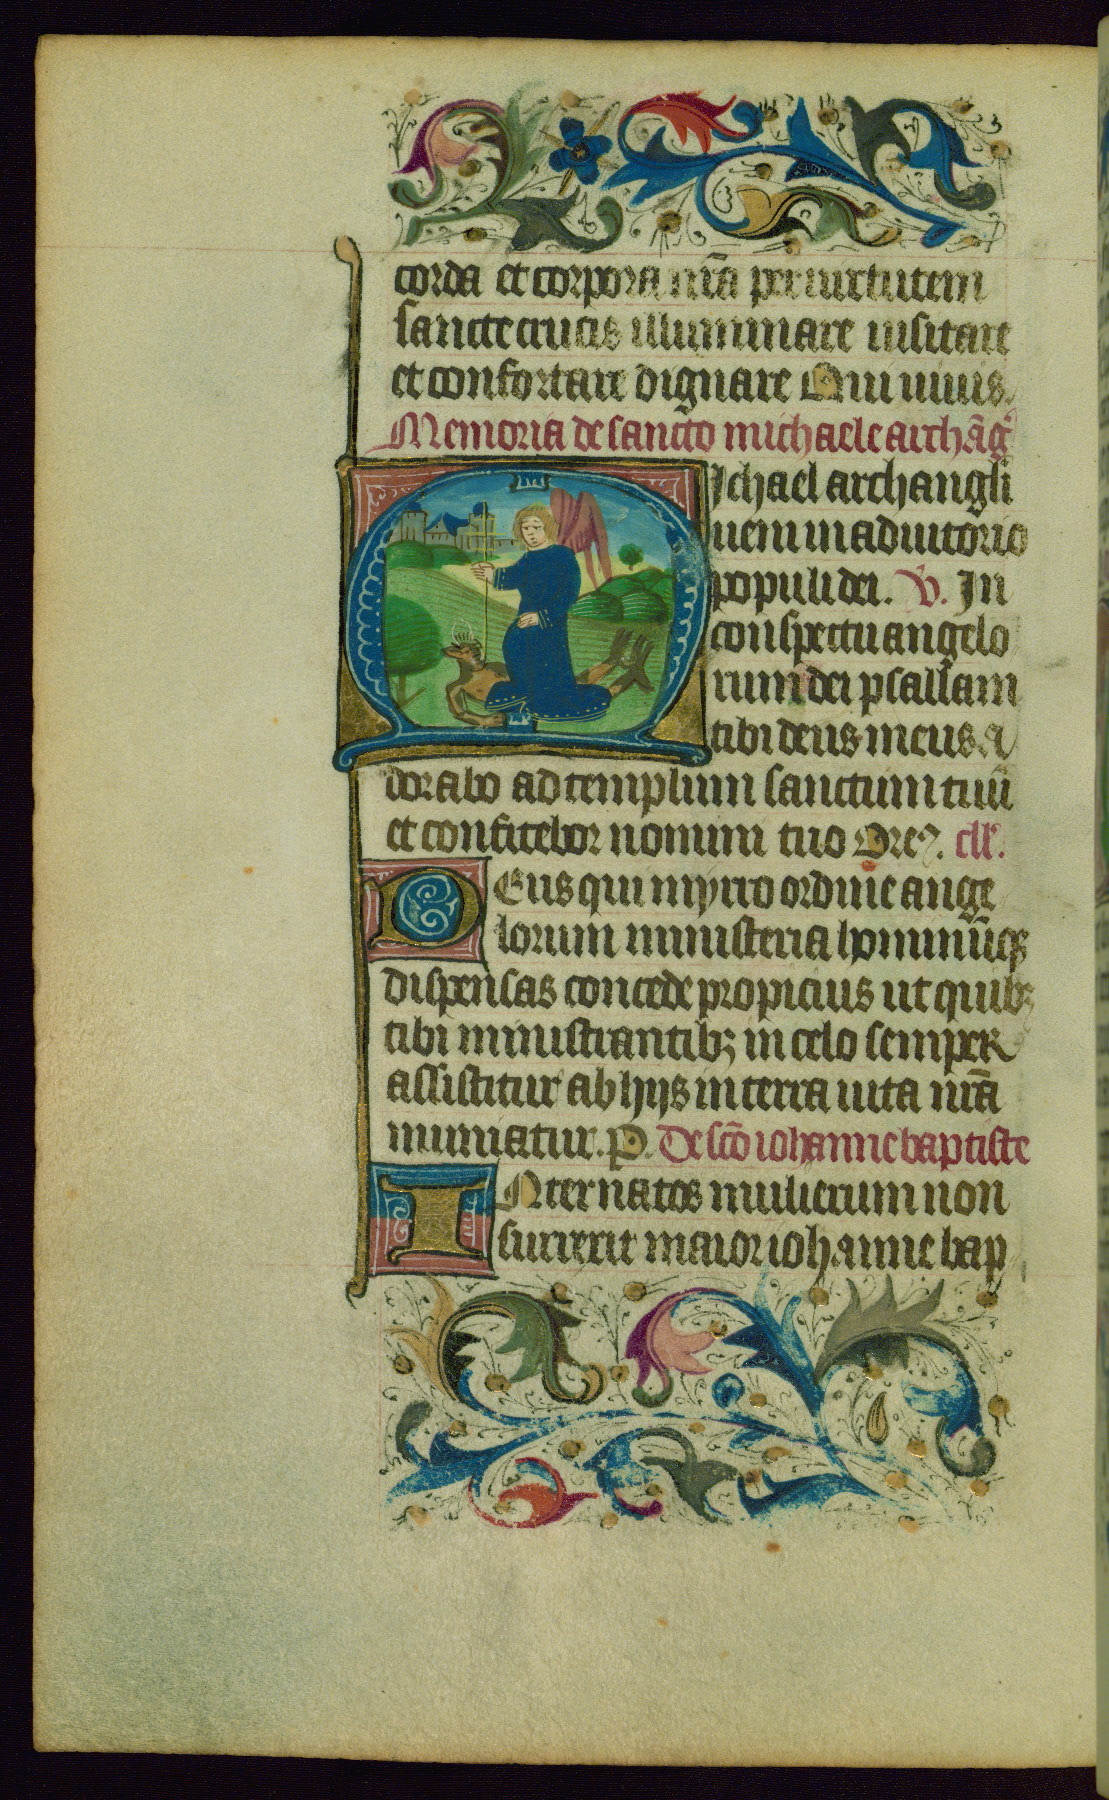 corda et corpora nr̄a per uirtutem
sancte crucis illuminare uisitare
et confortare dignare Qui uiuis.
Memoria de sancto michaele archāḡ
Michael archangli
ueni in adiutorio
populi dei. V. In
conspectu angelo
rum dei psallam
tibi deus meus a
dorabo ad templum sanctum tuū
et confitebor nomini tuo Ore. cll'.
DEus qui myro ordine ange
lorum ministeria hominūq3
dispensas concede propicius ut quib3
tibi ministrantib3 in celo semper
assistitur ab hijs in terra uita nr̄a
muniatur. P. De sc̄o iohanne baptiste
INter natos mulierum non
surrexit maior iohanne bap